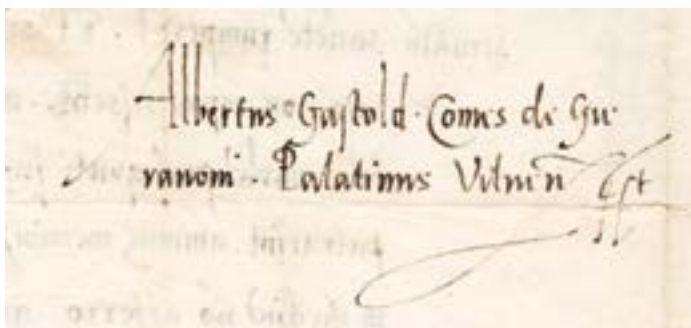 Albertus Gastold Comes de Gu
ranoni Palatinus Vilnen̄ sst